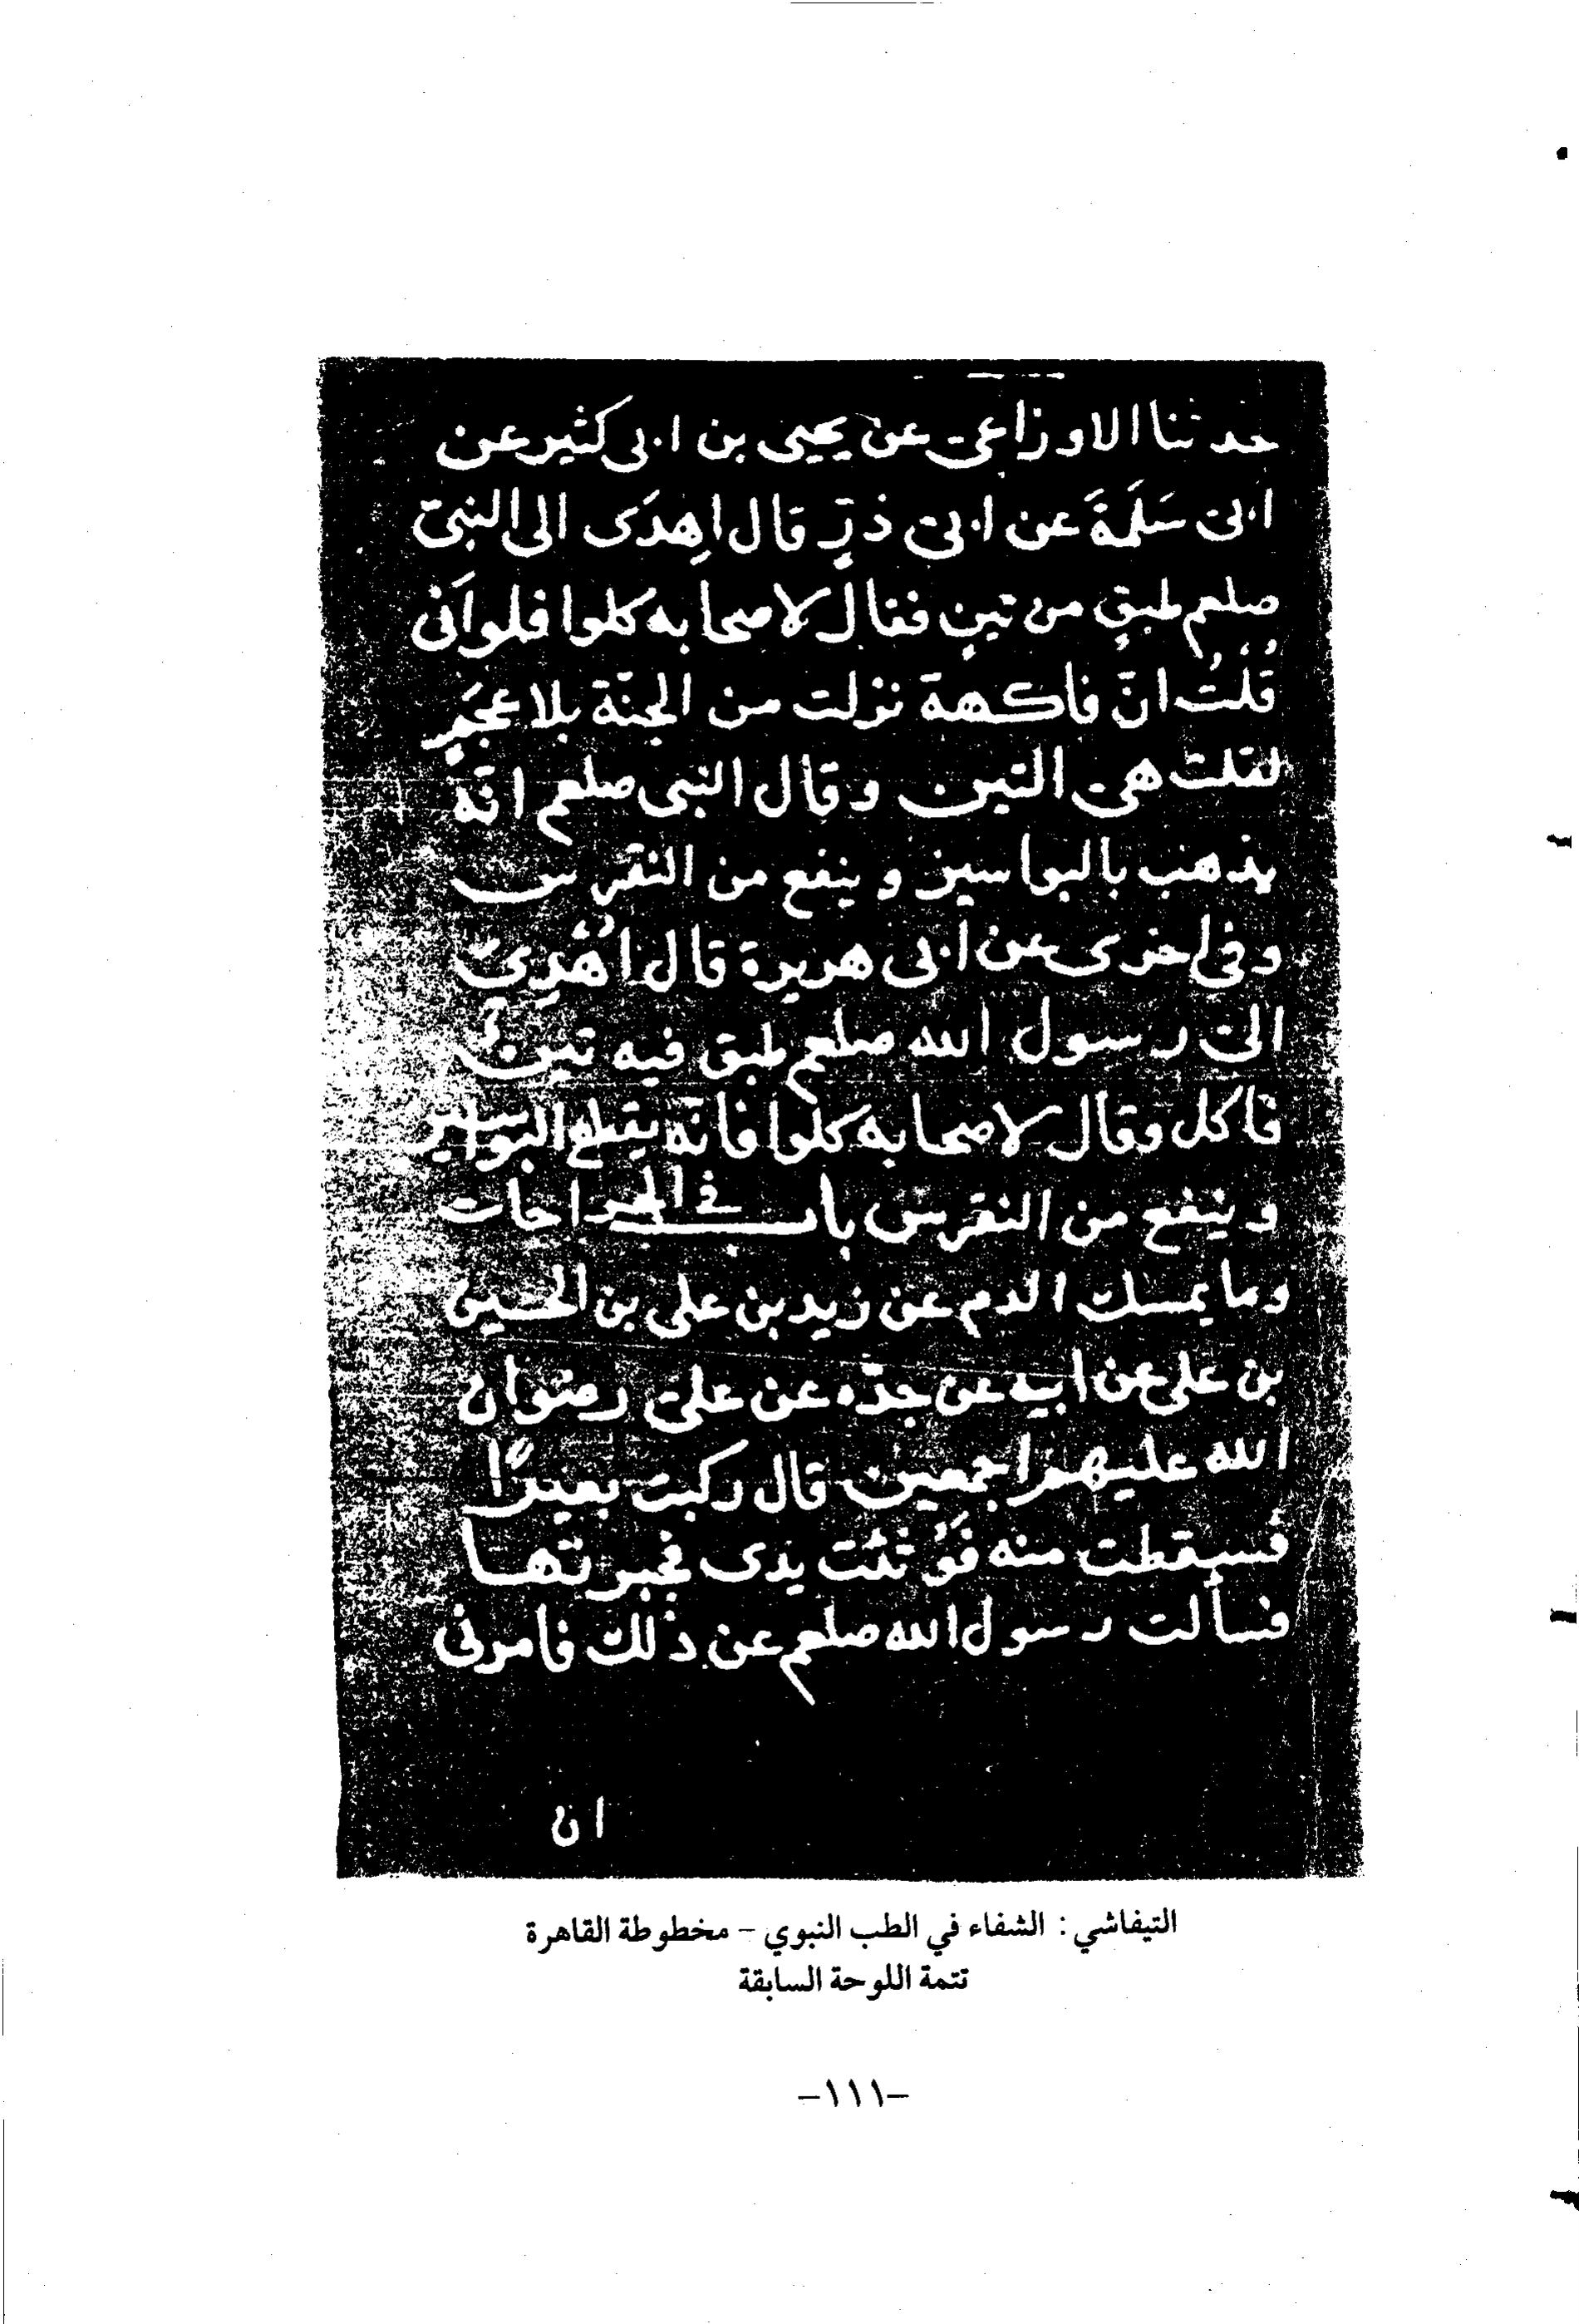 حدثنا الاوزاعى عن يحيى بن ابى كثير عن
ابى سَلَمَةَ عن ابى ذرٍّ قال اهدَى الى النبىّ
صلعم طبقٍ من تينٍ فقال لاصحابه كلوا فلو انى
قُلْتُ انّ فاكهة نزلت من الجنّة بلا عَجَمٍ
لقلت هى التين وقال النبى صلعم انّه
يذهب بالبواسير وينفع من النقرس
وفى اخرى عن ابى هريرة قال اُهْدِىَ
الى رسول الله صلعم طبق فيه تينٌ
فاكل وقال لاصحابه كلوا فانّه يقطع البواسير
وينفع من النقرس باب فى الجراحات
وما يمسك الدم عن زيد بن على بن الحسين
بن على عن ابيه عن جدّه عن على رضوان
الله عليهم اجمعين قال ركبت بعيرًا
فسقطت منه فَوُثئت يدى فجبرتها
فسألت رسول الله صلعم عن ذلك فامرنى
ان
التيفاشي : الشفاء في الطب النبوي - مخطوطة القاهرة
تتمة اللوحة السابقة
-١١١-